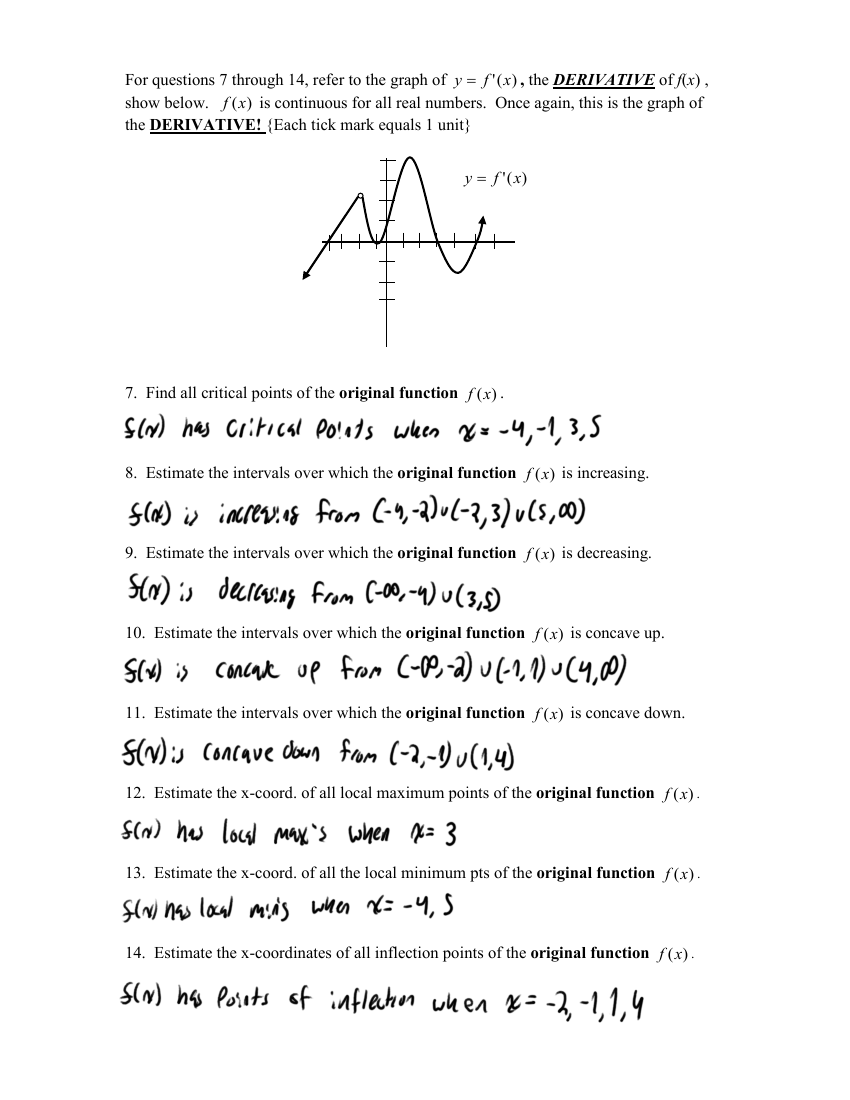 For questions 7 through 14, refer to the graph of y = f'(x), the DERIVATIVE of f(x) ,
show below. f(x) is continuous for all real numbers. Once again, this is the graph of
the DERIVATIVE! {Each tick mark equals 1 unit}
y = f'(x)
7. Find all critical points of the original function f(x).
f(x) has critical points when x = -4, -1, 3, 5
8. Estimate the intervals over which the original function f(x) is increasing.
f(x) is increasing from (-4,-2)∪(-2,3)∪(5,∞)
9. Estimate the intervals over which the original function f(x) is decreasing.
f(x) is decreasing from (-∞,-4)∪(3,5)
10. Estimate the intervals over which the original function f(x) is concave up.
f(x) is concave up from (-∞,-2)∪(-1,1)∪(4,∞)
11. Estimate the intervals over which the original function f(x) is concave down.
f(x) is concave down from (-2,-1)∪(1,4)
12. Estimate the x-coord. of all local maximum points of the original function f(x).
f(x) has local max's when x = 3
13. Estimate the x-coord. of all the local minimum pts of the original function f(x).
f(x) has local mins when x = -4, 5
14. Estimate the x-coordinates of all inflection points of the original function f(x).
f(x) has points of inflection when x = -2, -1, 1, 4